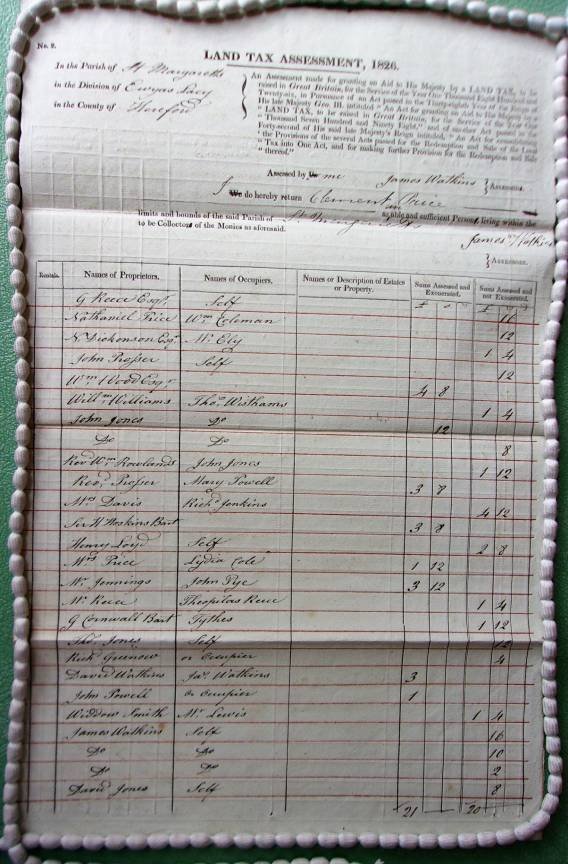 No. 9.
LAND TAX ASSESSMENT, 1826.
In the Parish of St Margaretts
in the Division of Ewyas Lacy
in the County of Hereford
An Assessment made for granting an Aid to His Majesty by a LAND TAX, to be
raised in Great Britain, for the Service of the Year One Thousand Eight Hundred and
in Pursuance of an Act passed in the Thirty-eighth Year of the Reign of
His late Majesty Geo. III. intituled "An Act for granting an Aid to His Majesty by a
"LAND TAX, to be raised in Great Britain, for the Service of the Year One
"Thousand Seven Hundred and Ninety Eight," and of another Act passed in the
Forty-second of His said late Majesty's Reign intituled, "An Act for consolidating
"the Provisions of the several Acts passed for the Redemption and Sale of the Land
"Tax into One Act, and for making further Provision for the Redemption and Sale
"thereof."
Assessed by Us me James Watkins } Assessors.
I We do hereby return Clement Price an as able and sufficient Persons, living within the
limits and bounds of the said Parish of St Margaretts
to be Collectors of the Monies as aforesaid.
James Watkins
} Assessor.
Rentals. Names of Proprietors. Names of Occupiers. Names or Description of Estates or Property. Sums Assessed and Exonerated. Sums Assessed and not Exonerated.
G Reece Esqr. Self 16
Nathaniel Price Wm. Coleman 12
N. Dickenson Esqr. Mr. Ely 1 4
John Prosser Self 12
Wm. Wood Esqr. 4 8
Willm. Williams Thos. Wisthams 1 4
John Jones Do 12
Do Do 8
Revd. Wm. Rowlands John Jones 1 12
Revd. Prosser Mary Powell 3 7
Mrs Davis Richd. Jenkins 4 12
Sir H Hoskins Bart 3 8
Henry Loyd Self 2 8
Mrs Price Lydia Cole 1 12
Mr. Jennings John Pye 3 12
Mr. Reece Theopilas Reece 1 4
G Cornwall Bart Tythes 1 12
Thos. Jones Self 12
Richd. Greenow or Occupier 4
David Watkins Jas. Watkins 3
John Powell or occupier 1
Widdow Smith Mr. Lewis 1 4
James Watkins Self 16
Do Do 10
Do Do 2
David Jones Self 8
21 20